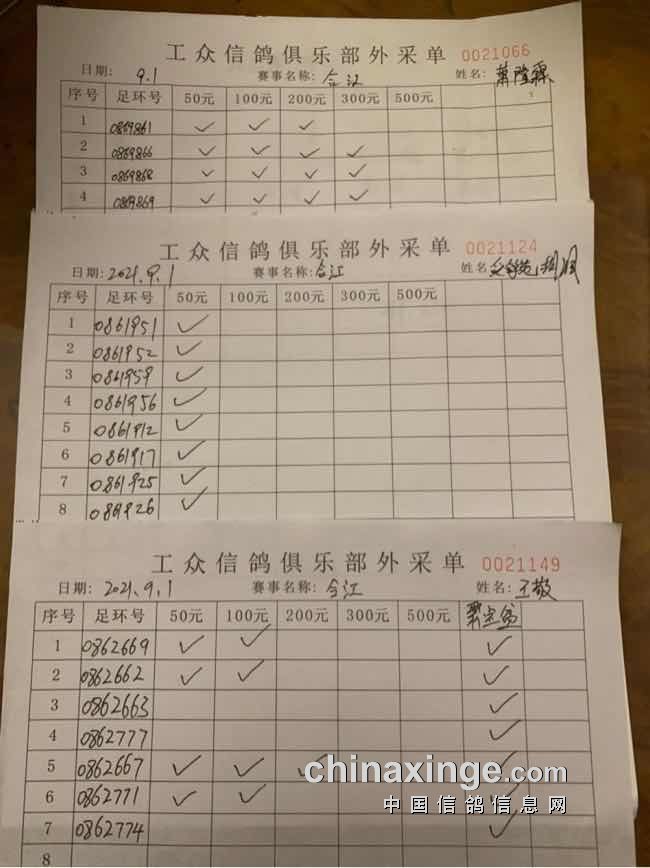 工众信鸽俱乐部外采单 0021066
日期: 9.1 赛事名称: 合江 姓名: 萧隆霖
序号 足环号 50元 100元 200元 300元 500元
1 0869861 ✓ ✓ ✓
2 0869866 ✓ ✓ ✓ ✓
3 0869868 ✓ ✓ ✓ ✓
4 0869869 ✓ ✓ ✓ ✓
工众信鸽俱乐部外采单 0021124
日期: 2021.9.1 赛事名称: 合江 姓名:
序号 足环号 50元 100元 200元 300元 500元
1 0861951 ✓
2 0861952 ✓
3 0861959 ✓
4 0861956 ✓
5 0861912 ✓
6 0861917 ✓
7 0861925 ✓
8 ✓
工众信鸽俱乐部外采单 0021149
日期: 2021.9.1 赛事名称: 合江 姓名: 王敬
序号 足环号 50元 100元 200元 300元 500元
1 0862669 ✓ ✓ ✓
2 0862662 ✓ ✓ ✓
3 0862663 ✓
4 0862777 ✓
5 0862667 ✓ ✓ ✓ ✓
6 0862771 ✓ ✓ ✓
7 0862774 ✓
8
chinaxinge.com
中国信鸽信息网